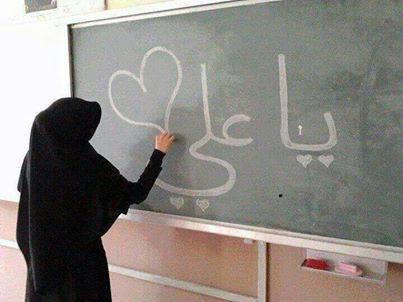 یا علي